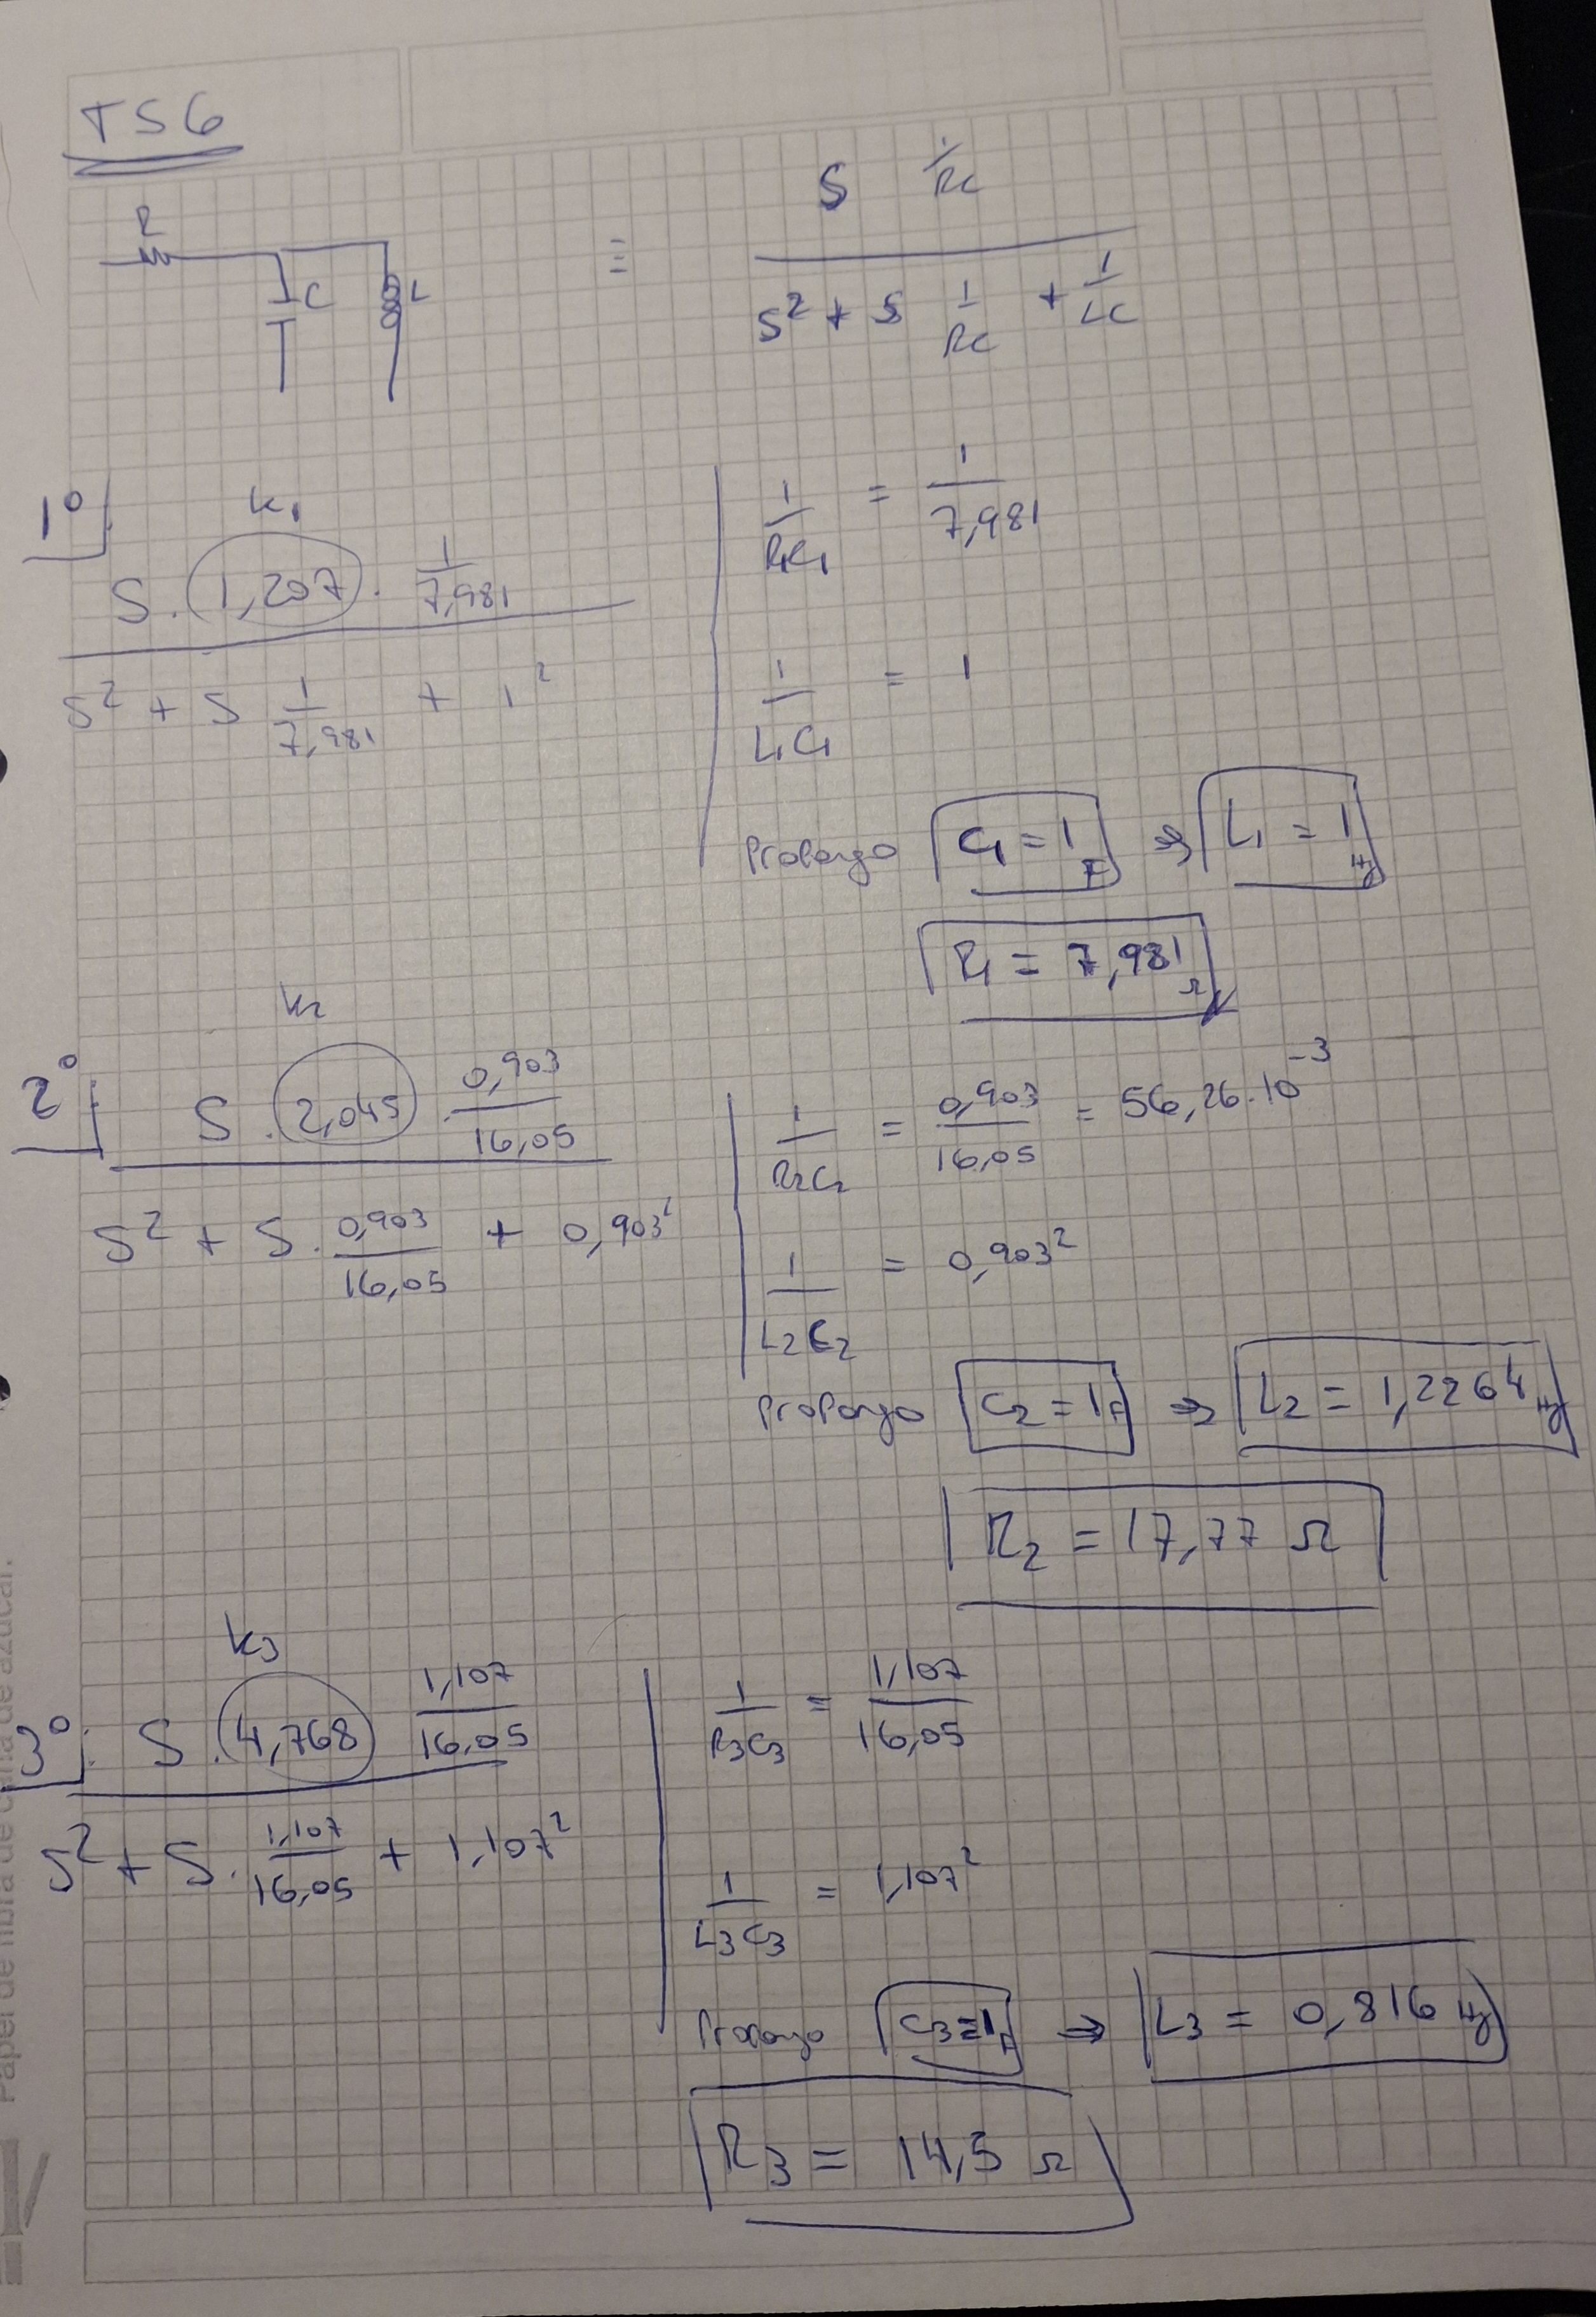 TS6
R
C
L
≡
S 1/RC
S² + S 1/RC + 1/LC
1º
k₁
S . 1,207 . 1/7,981
S² + S 1/7,981 + 1²
1/R₁C₁ = 1/7,981
1/L₁C₁ = 1
Propongo C₁ = 1 F ⇒ L₁ = 1 Hy
R₁ = 7,981 Ω
2º
k₂
S . 2,045 . 0,903/16,05
S² + S . 0,903/16,05 + 0,903²
1/R₂C₂ = 0,903/16,05 = 56,26.10⁻³
1/L₂C₂ = 0,903²
Propongo C₂ = 1 F ⇒ L₂ = 1,2264 Hy
R₂ = 17,77 Ω
3º
k₃
S . 4,768 1,107/16,05
S² + S . 1,107/16,05 + 1,107²
1/R₃C₃ = 1,107/16,05
1/L₃C₃ = 1,107²
Propongo C₃ = 1 F ⇒ L₃ = 0,816 Hy
R₃ = 14,5 Ω
Papel de fibra de caña de azúcar.